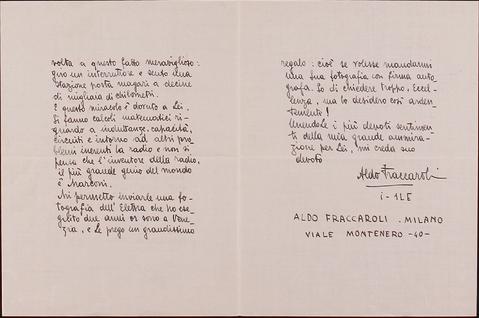 volta a questo fatto meraviglioso:
giro un interruttore e sento una
stazione posta magari a decine
di migliaia di chilometri.
E questo miracolo è dovuto a Lei.
Si fanno calcoli matematici ri-
guardo a induttanze, capacità,
circuiti e intorno ad altri pro
blemi inerenti la radio e non si
pensa che l'inventore della radio,
il più grande genio del mondo
è Marconi.
Mi permetto inviarle una fo-
tografia dell'Elettra che ho ese-
guito due anni or sono a Vene-
zia, e Le prego un grandissimo
regalo: cioè se volesse mandarmi
una sua fotografia con firma auto
grafa. So di chiedere troppo, Eccel-
lenza, ma lo desidero così arden-
temente!
Umiliandole i più devoti sentimen
ti della mia grande ammira-
zione per Lei, mi creda suo
devoto
Aldo Fraccaroli
i-1LE
ALDO FRACCAROLI . MILANO
VIALE MONTENERO -40-